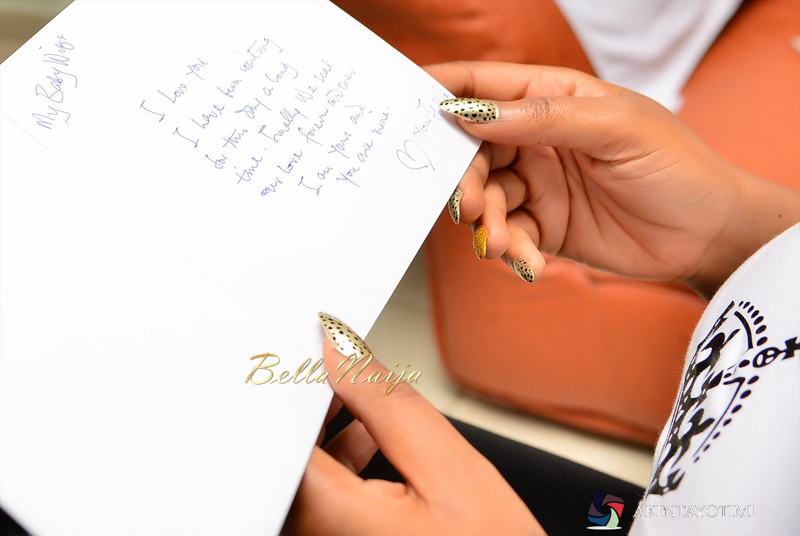 My Baby Wife
I Love You
I have been waiting
for this day a long
time. Finally We seal
our love forever and ever
I am Yours and
You are mine.
♡ Your
BellaNaija
AKINTAYOTIMI